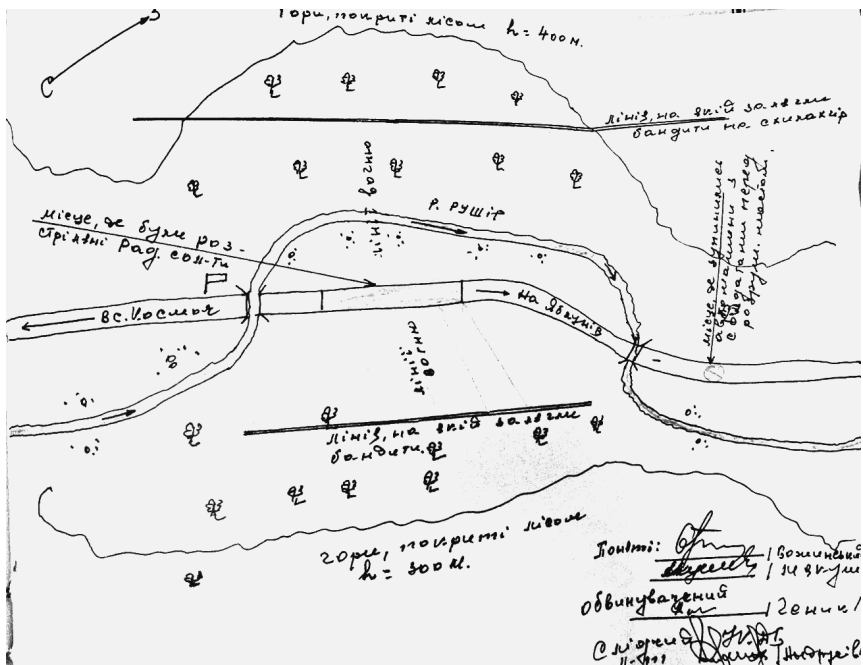 С
Гори, покриті лісом h = 400 м.
лінія, на якій залягли
бандити на схилах гір
місце, де були роз-
стріляні рад. сол-ти
лінії вогню
р. Рушір
місце, де зупинились
автомашини з
солдатами перед
мостом.
в с. Космач
на Яблунів
лінії
вогню
лінія, на якій залягли
бандити.
гори, покриті лісом
h = 300 м.
Поняті:
Обвинувачений
/Геник/